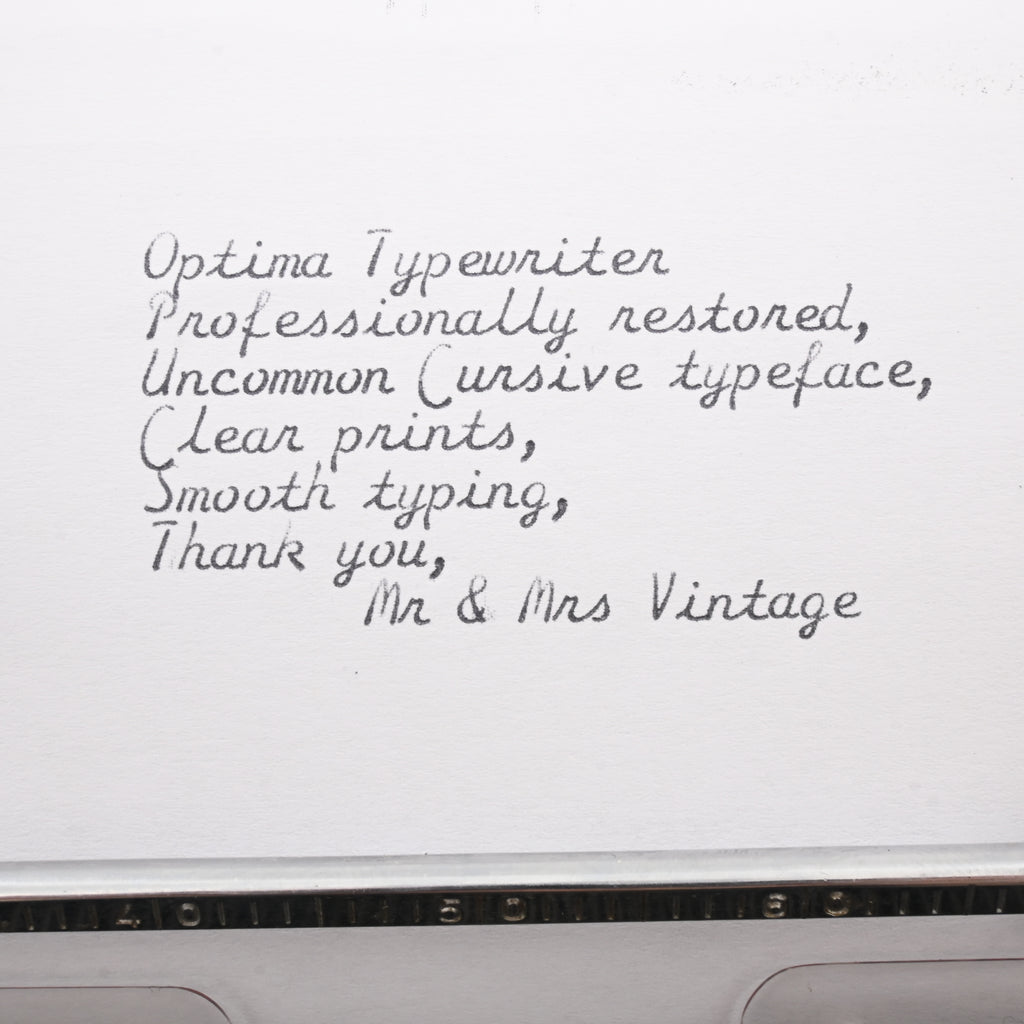 Optima Typewriter
Professionally restored,
Uncommon Cursive typeface,
Clear prints,
Smooth typing,
Thank you,
Mr & Mrs Vintage
40 50 60